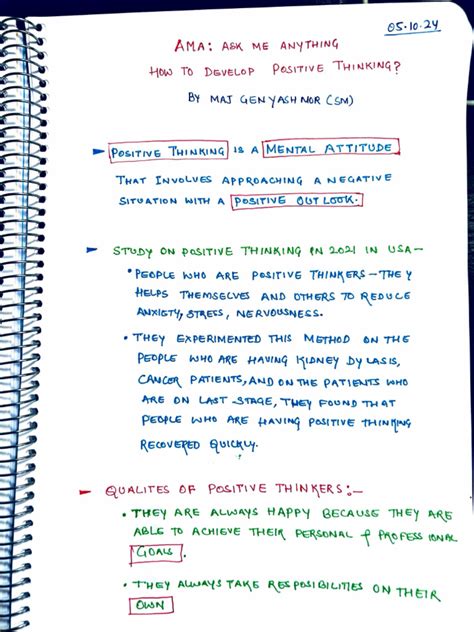 05.10.24
AMA: ASK ME ANYTHING
HOW TO DEVELOP POSITIVE THINKING?
BY MAJ GEN YASH MOR (SM)
POSITIVE THINKING IS A MENTAL ATTITUDE
THAT INVOLVES APPROACHING A NEGATIVE
SITUATION WITH A POSITIVE OUTLOOK.
STUDY ON POSITIVE THINKING IN 2021 IN USA-
• PEOPLE WHO ARE POSITIVE THINKERS - THEY
HELPS THEMSELVES AND OTHERS TO REDUCE
ANXIETY, STRESS, NERVOUSNESS.
• THEY EXPERIMENTED THIS METHOD ON THE
PEOPLE WHO ARE HAVING KIDNEY DYLASIS,
CANCER PATIENTS, AND ON THE PATIENTS WHO
ARE ON LAST STAGE, THEY FOUND THAT
PEOPLE WHO ARE HAVING POSITIVE THINKING
RECOVERED QUICKLY.
QUALITES OF POSITIVE THINKERS:-
• THEY ARE ALWAYS HAPPY BECAUSE THEY ARE
ABLE TO ACHIEVE THEIR PERSONAL & PROFESSIONAL
GOALS.
• THEY ALWAYS TAKE RESPOSIBILITIES ON THEIR
OWN